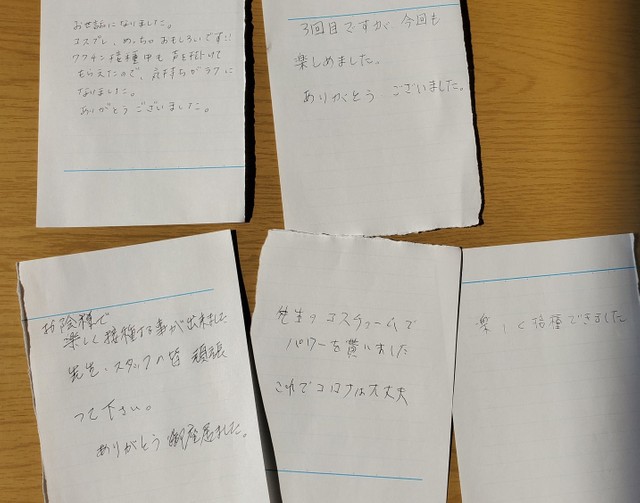 お世話になりました。
コスプレ、めっちゃおもしろいです!!
ワクチン接種中も声を掛けて
もらえたので、気持ちがラクに
なりました。
ありがとうございました。
3回目ですが、今回も
楽しめました。
ありがとう ございました。
お陰様で
楽しく接種する事が出来ました
先生・スタッフの皆 頑張
って下さい。
ありがとう 御座居ました。
先生のコスチュームで
パワーを貰いました
これでコロナは大丈夫
楽しく接種できました